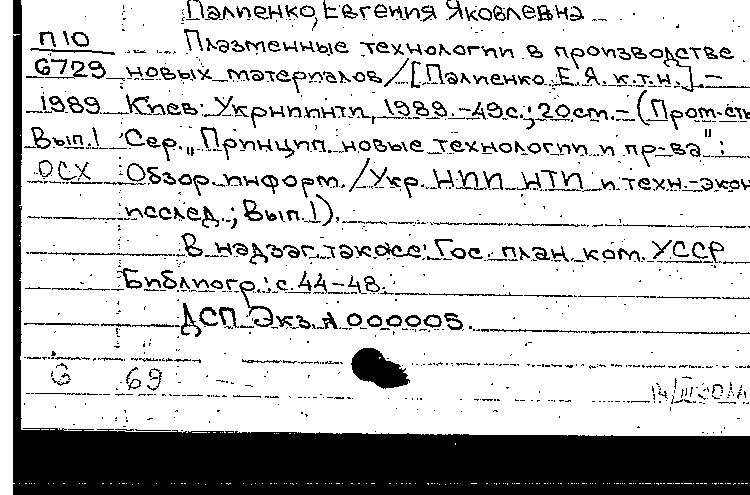 Палиенко, Евгения Яковлевна
П10 Плазменные технологии в производстве
6729 новых материалов/[Палиенко Е.Я. к.т.н.].–
1989 Киев: Укрниинти, 1989.–49с.; 20см.–(Пром-сть
Вып.1 Сер. „Принцип. новые технологии и пр-ва":
ОСХ Обзор. информ./Укр. НИИ НТИ и техн.-экон
исслед.; Вып.1).
В надзаг. также: Гос. план. ком. УССР
Библиогр.: с.44–48.
ДСП Экз.№ 000005.
69